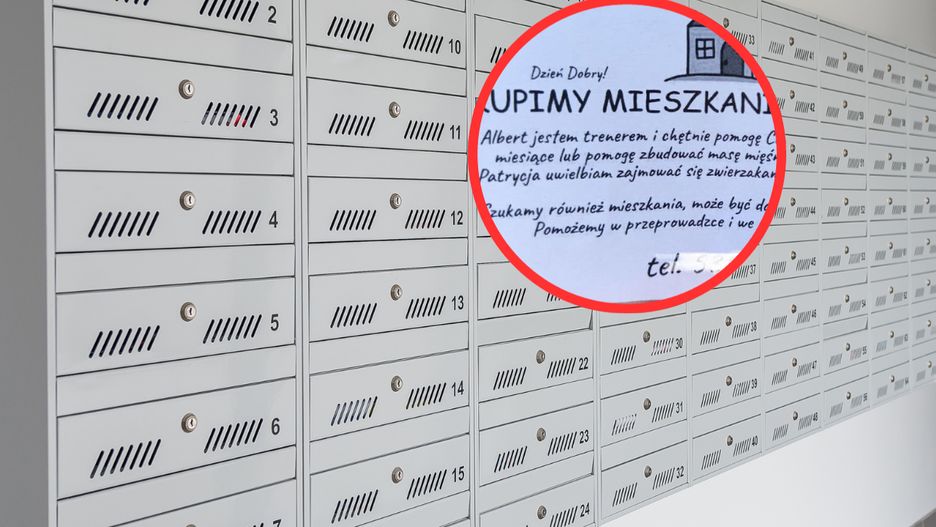 Dzień Dobry!
KUPIMY MIESZKANI
Albert jestem trenerem i chętnie pomogę C
miesiące lub pomogę zbudować masę mięśn
Patrycja uwielbiam zajmować się zwierzakam
Szukamy również mieszkania, może być do
Pomożemy w przeprowadzce i we
tel. 5
2
3
4
5
6
7
10
11
12
13
14
15
22
23
24
30
31
32
33
37
38
39
40
41
45
46
47
48